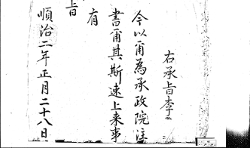 右承旨李
令以甯為承政院注
書甯其斯速上来事
有
旨
順治二年正月二十八日